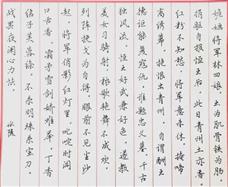 姽婳将军林四娘，玉为肌骨铁为肠，
捐躯自报恒王后，此日青州土亦香。
红粉不知愁，将军意未休。掩啼
离绣幕，抱恨出青州。自谓酬王
德，讵能复寇仇。谁题忠义墓，千古
独风流。恒王好武兼好色，遂教
美女习骑射。秾歌艳舞不成欢，
列阵挽戈为自得。眼前不见尘沙
起，将军俏影红灯里。叱咤时闻
口舌香，霜矛雪剑娇难举。丁香
结子芙蓉绦，不系明珠系宝刀。
战罢夜阑心力怯，